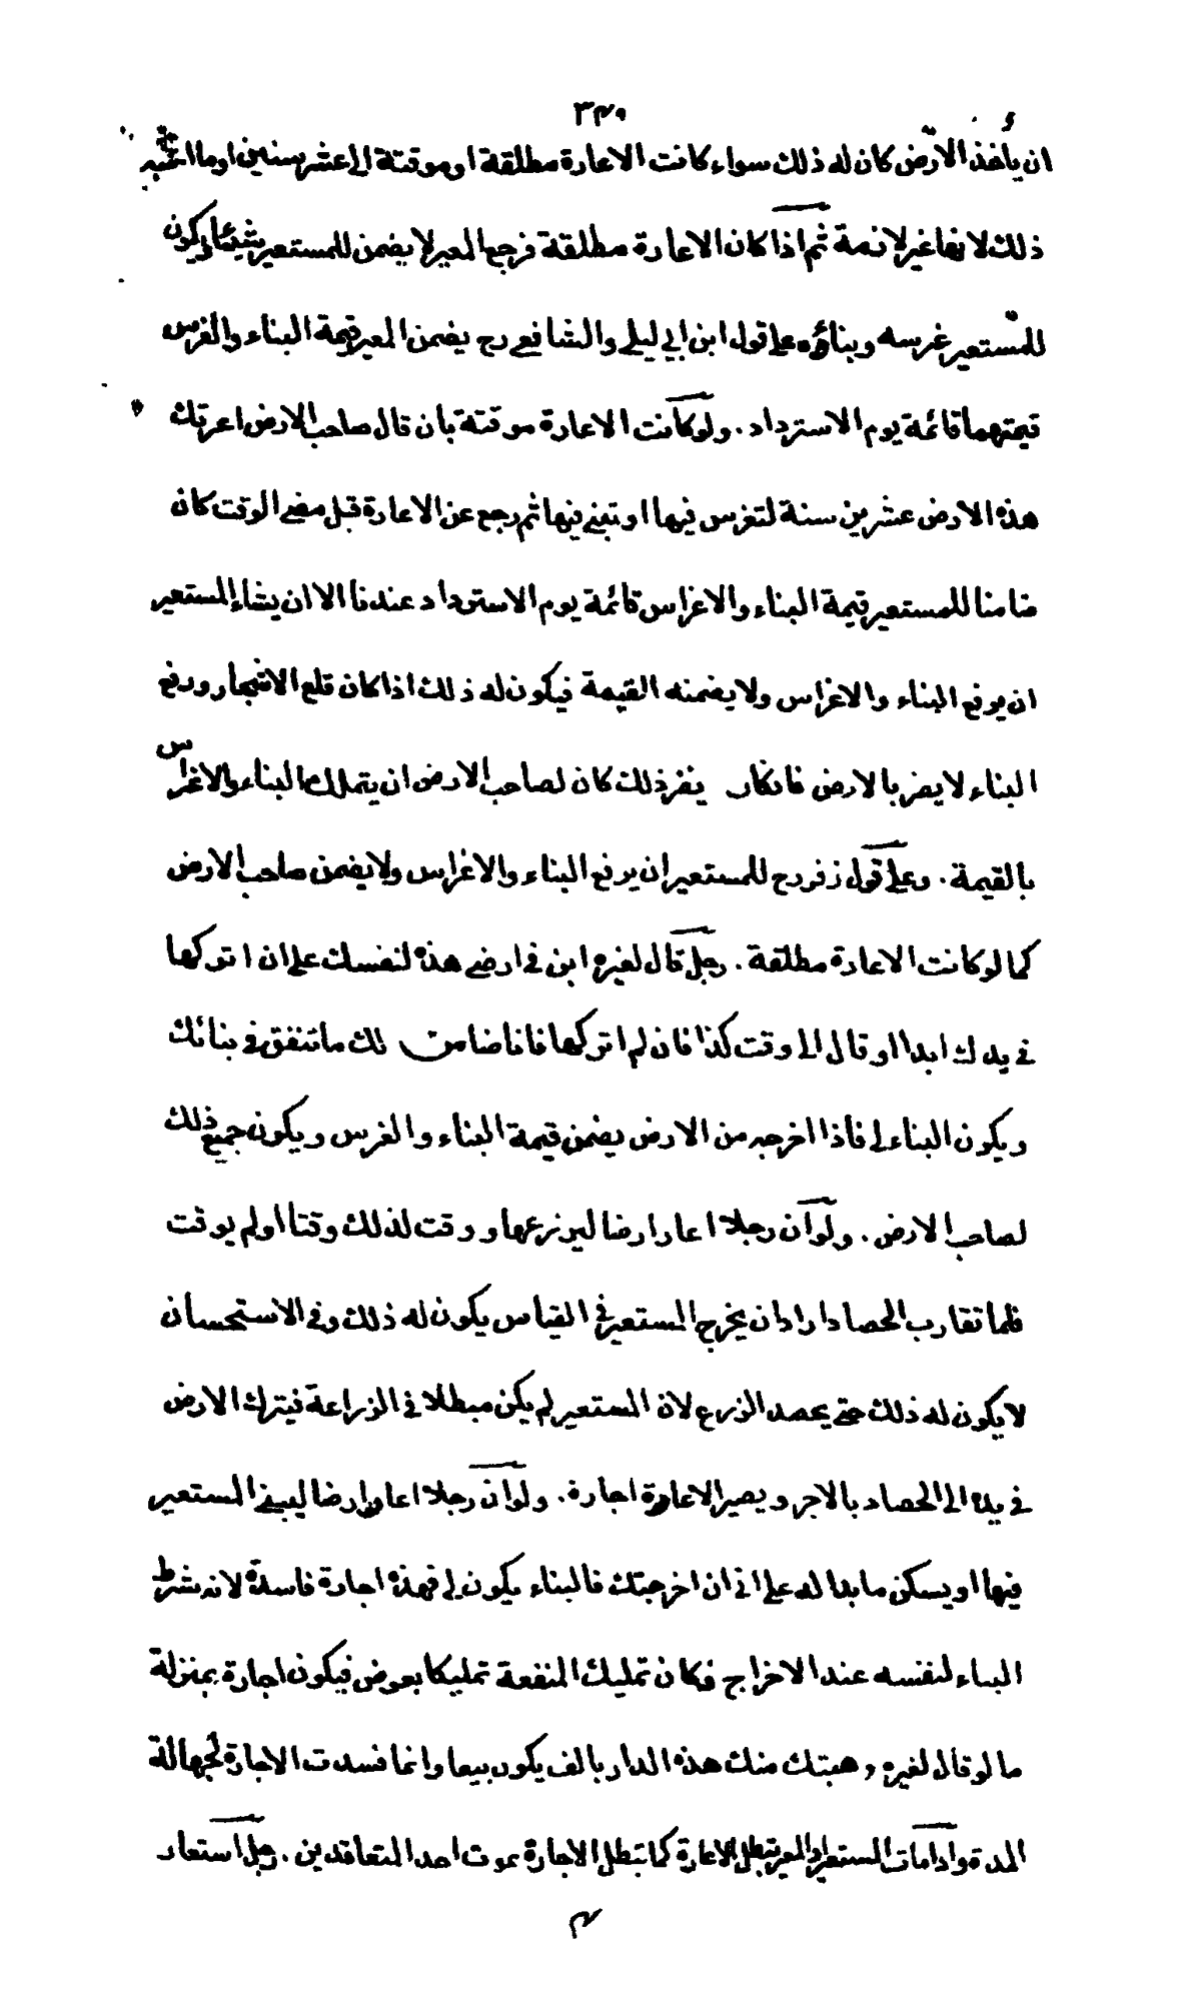 ٣٤٩
ان يأخذ الارض كان له ذلك سواء كانت الاعارة مطلقة او موقتة الى عشر سنين او ما اشبه
ذلك لانها غير لازمة ثم اذا كان الاعارة مطلقة فرجع المعير لا يضمن للمستعير شيئا ويكون
للمستعير غرسه وبناؤه على قول ابن ابي ليلى والشافعي رح يضمن المعير قيمة البناء والغرس
قيمتهما قائمة يوم الاسترداد. ولو كانت الاعارة موقتة بان قال صاحب الارض اعرتك
هذه الارض عشرين سنة لتغرس فيها او تبني فيها ثم رجع عن الاعارة قبل مضي الوقت كان
ضامنا للمستعير قيمة البناء والاغراس قائمة يوم الاسترداد عندنا الا ان يشاء المستعير
ان يرفع البناء والاغراس ولا يضمنه القيمة فيكون له ذلك اذا كان قلع الاشجار ورفع
البناء لا يضر بالارض فانكان يضر ذلك كان لصاحب الارض ان يتملك البناء والاغراس
بالقيمة. وعلى قول زفر رح للمستعير ان يرفع البناء والاغراس ولا يضمن صاحب الارض
كما لو كانت الاعارة مطلقة. رجل قال لغيره ابن في ارضي هذه لنفسك على ان اتركها
في يدك ابدا او قال الى وقت كذا فان لم اتركها فانا ضامن لك ما تنفق في بنائك
ويكون البناء لي فاذا اخرجه من الارض يضمن قيمة البناء والغرس ويكون جميع ذلك
لصاحب الارض. ولو ان رجلا اعار ارضا ليزرعها ووقت لذلك وقتا او لم يوقت
فلما تقارب الحصاد اراد ان يخرج المستعير في القياس يكون له ذلك وفي الاستحسان
لا يكون له ذلك حتى يحصد الزرع لان المستعير لم يكن مبطلا في الزراعة فيترك الارض
في يده الى الحصاد بالاجر ويصير الاعارة اجارة. ولو ان رجلا اعار ارضا ليبني المستعير
فيها او يسكن ما بدا له على اني ان اخرجتك فالبناء يكون لي فهذه اجارة فاسدة لانه شرط
البناء لنفسه عند الاخراج فكان تمليك المنفعة تمليكا بعوض فيكون اجارة بمنزلة
ما لو قال لغيره وهبتك منك هذه الدار بالف يكون بيعا وانما فسدت الاجارة لجهالة
المدة واذا مات المستعير او المعير تبطل الاعارة كما تبطل الاجارة بموت احد المتعاقدين. رجل استعار